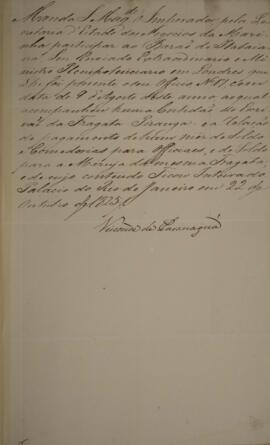 Manda S. Mag.de o Imperador pela Se-
cretaria d'Estado dos Negocios da Mari-
nha participar ao Barão de Itabaia-
na Seu Enviado Extraordinario e Mi-
nistro Plenipotenciario em Londres que
Lhe foi presente o seu Officio N.º 17 com
data de 9 d'Agosto deste anno ao qual
acompanhou huma Certidão do Escri-
vão da Fragata Piranga e a Relação
do pagamento de hum mez de Soldo
e Comedorias para Officiaes, e de Soldo
para a Marinhagem da mesma Fragata,
e de cujo conteudo Ficou Inteirado
Palacio do Rio de Janeiro em 22 de
Outubro de 1825.
Visconde de Paranaguá